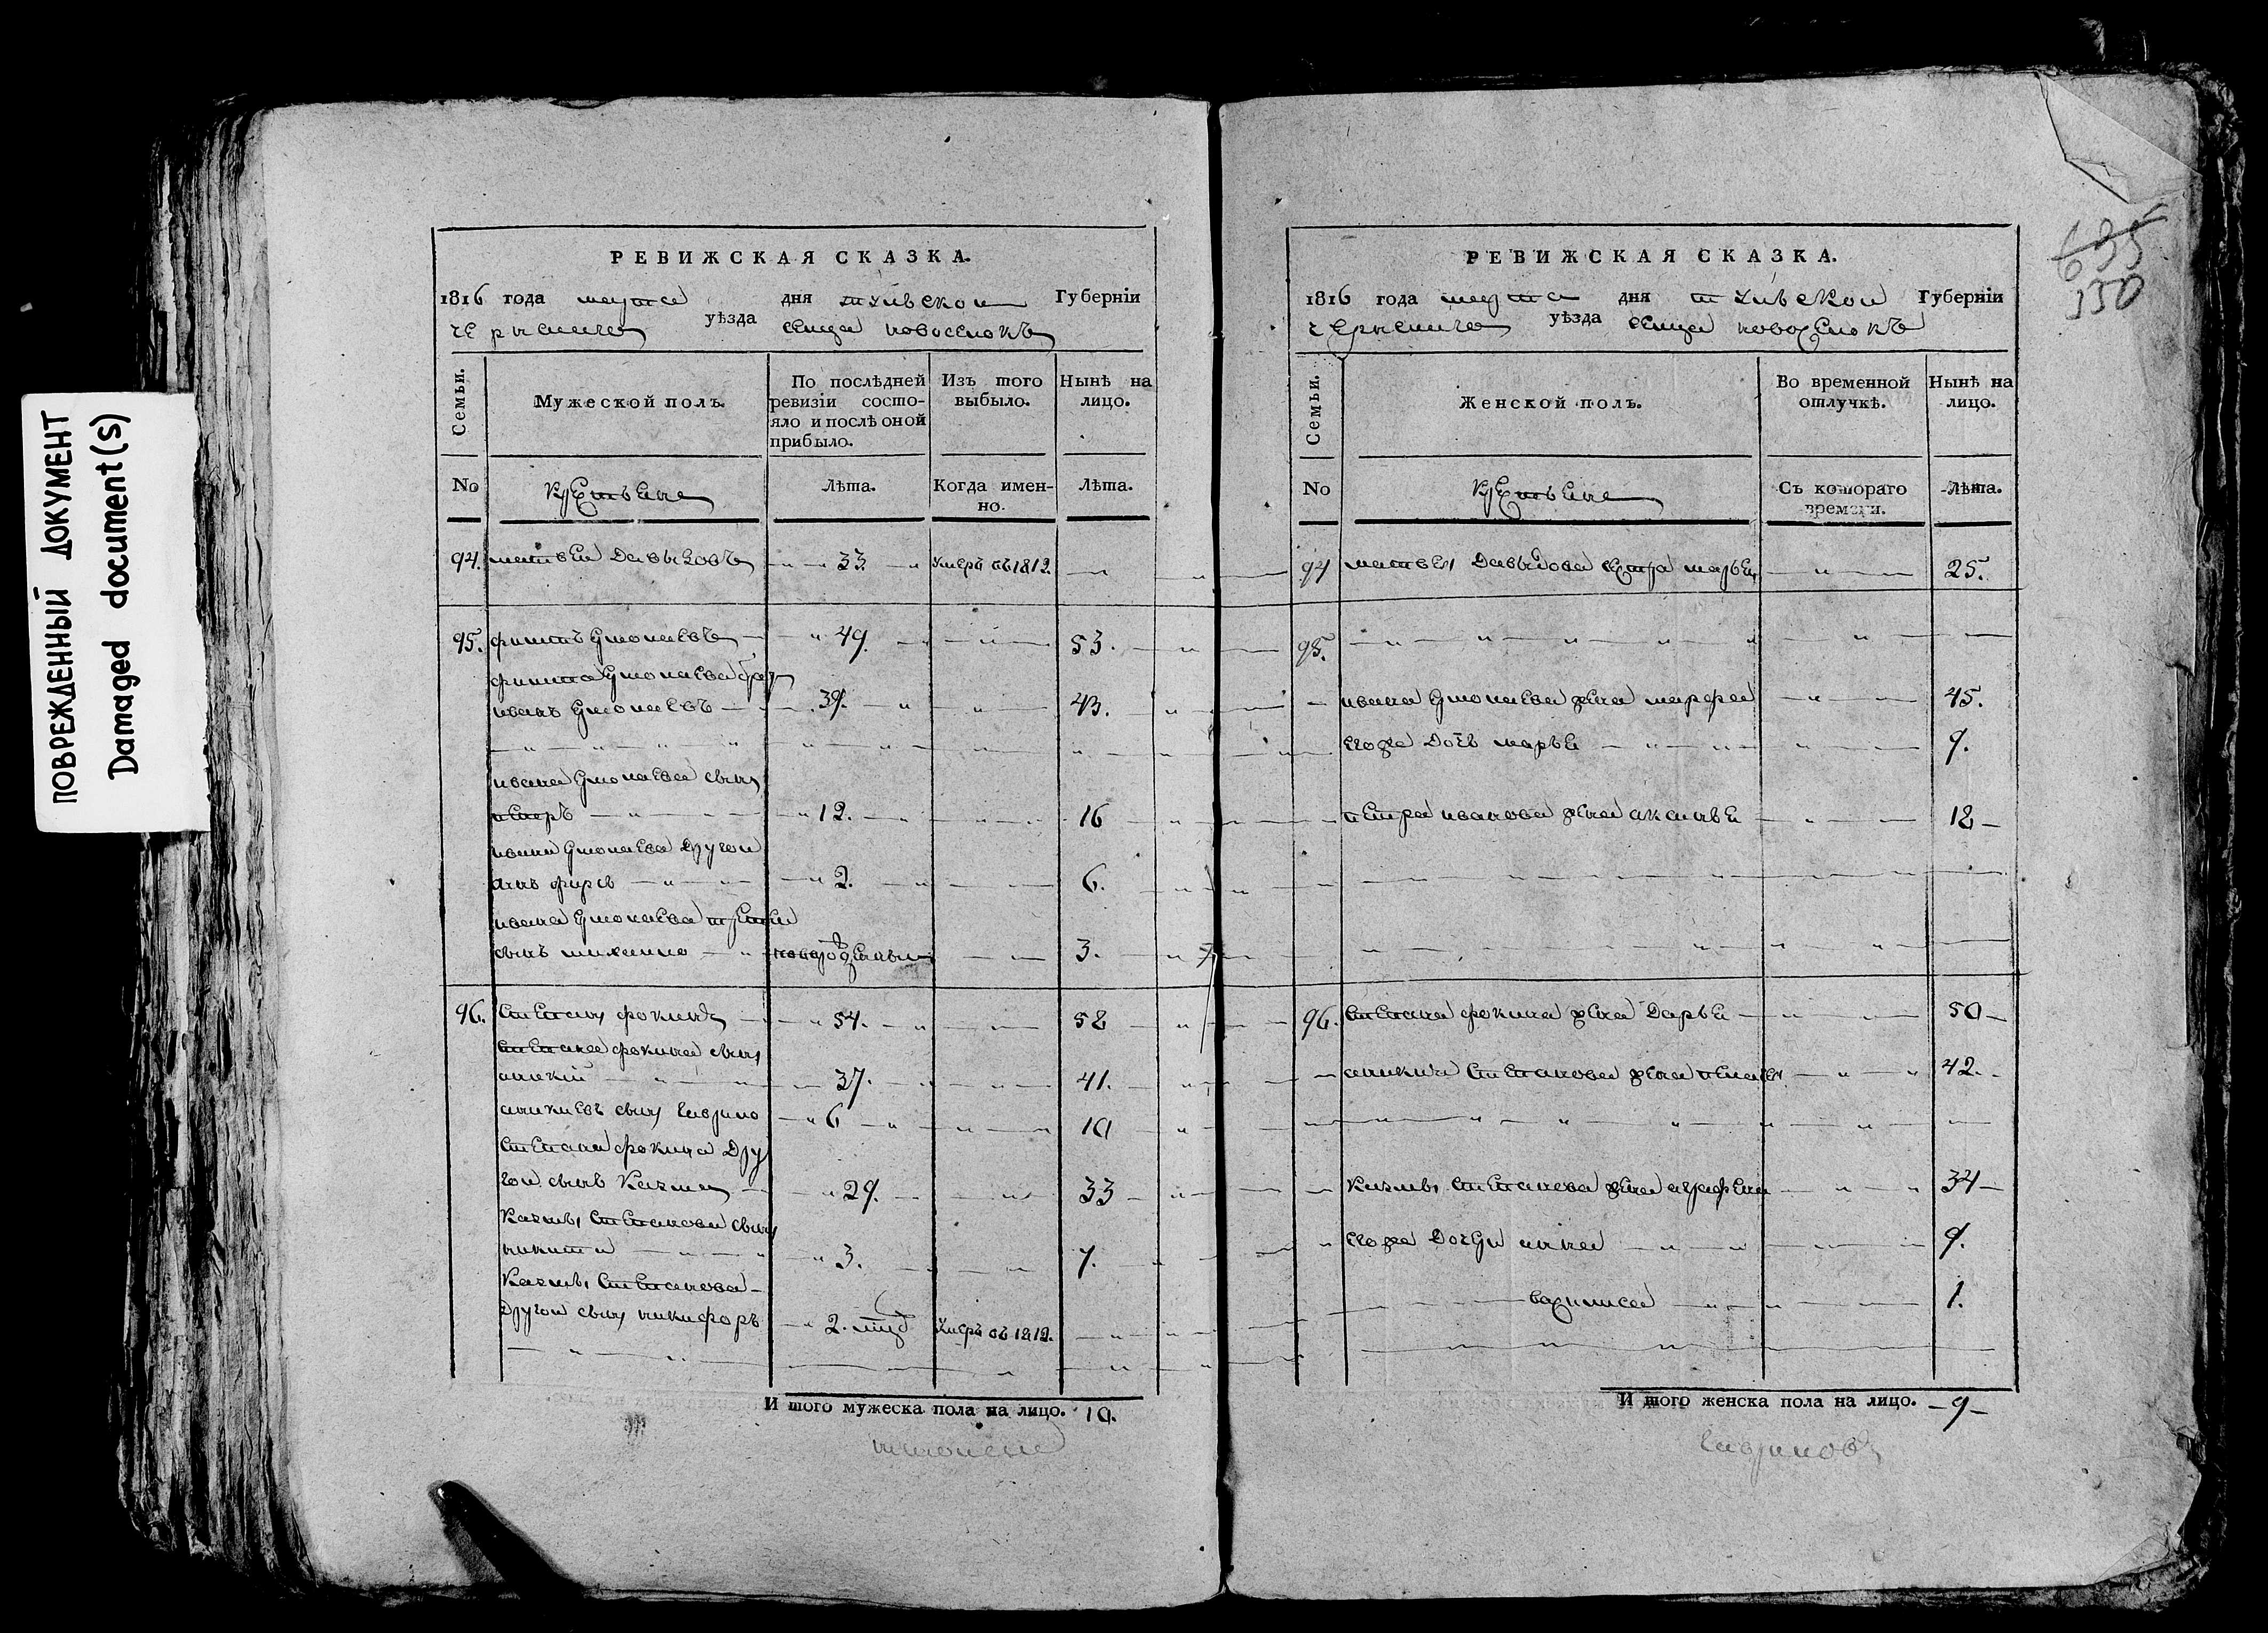 ПОВРЕЖДЕННЫЙ ДОКУМЕНТ
Damaged document(s)
РЕВИЖСКАЯ СКАЗКА.
1816 года марта дня тульской Губерніи
уѣзда сельца новоселокъ
Семьи.
Мужеской полъ.
По послѣдней ревизіи состояло и послѣ оной прибыло.
Изъ того выбыло.
Нынѣ на лицо.
No
крестьяне
Лѣта.
Когда именно.
Лѣта.
94. матвей Давыдовъ 33. умеръ въ 1812.
95. 49. 53.
брат
иванъ 39. 43.
ивана сынъ
петръ 12. 16
ивана другой
сынъ фирсъ 2. 6.
ивана третей
сынъ михаило новорожденный 3.
96. степанъ фокинъ 54. 58
степана фокина сынъ
аникий 37. 41.
аникиевъ сынъ гаврило 6 10
степана фокина дру
гой сынъ Казма 29. 33
Казмы степанова сынъ
никита 3. 7.
Казмы степанова
другой сынъ никифоръ 2. умеръ въ 1812.
И того мужеска пола на лицо. 10.
РЕВИЖСКАЯ СКАЗКА.
1816 года марта дня тульской Губерніи
уѣзда сельца новоселокъ
635
130
Семьи.
Женской полъ.
Во временной отлучкѣ.
Нынѣ на лицо.
No
крестьяне
Съ котораго времени.
Лѣта.
94 матвея Давыдова сестра марья 25.
95.
ивана жена марфа 45.
его же дочь марья 9.
петра иванова жена аксинья 18
96. степана фокина жена Дарья 50
аникия степанова жена пелагея 42.
Казмы степанова жена аграфена 34
его же дочери анна 9.
василиса 1.
И того женска пола на лицо. 9
гавриловъ